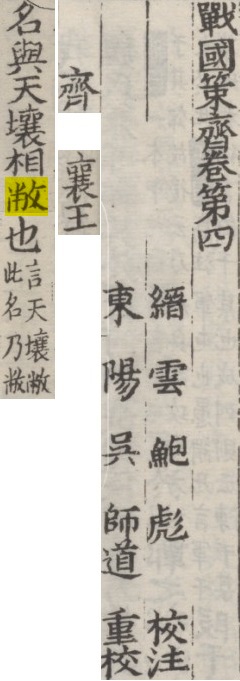 戰國策齊卷第四
縉雲鮑彪校注
東陽吳師道重校
齊
襄王
名與天壤相敝也言天壤敝
此名乃敝